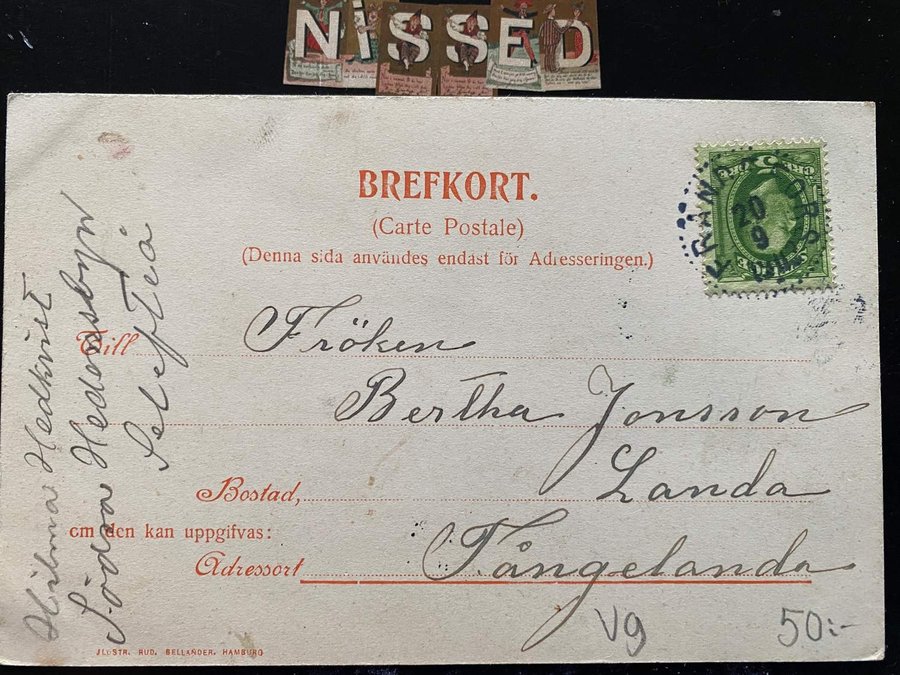 NISSED
BREFKORT.
(Carte Postale)
(Denna sida användes endast för Adresseringen.)
Till Fröken
Bertha Jonsson
Bostad, Landa
om den kan uppgifvas:
Adressort Tångelanda
Vg 50:-
JLLUSTR. RUD. BELLANDER, HAMBURG
Hilma Hedkvist
Södra Hedensbyn
Skefteå
20
9